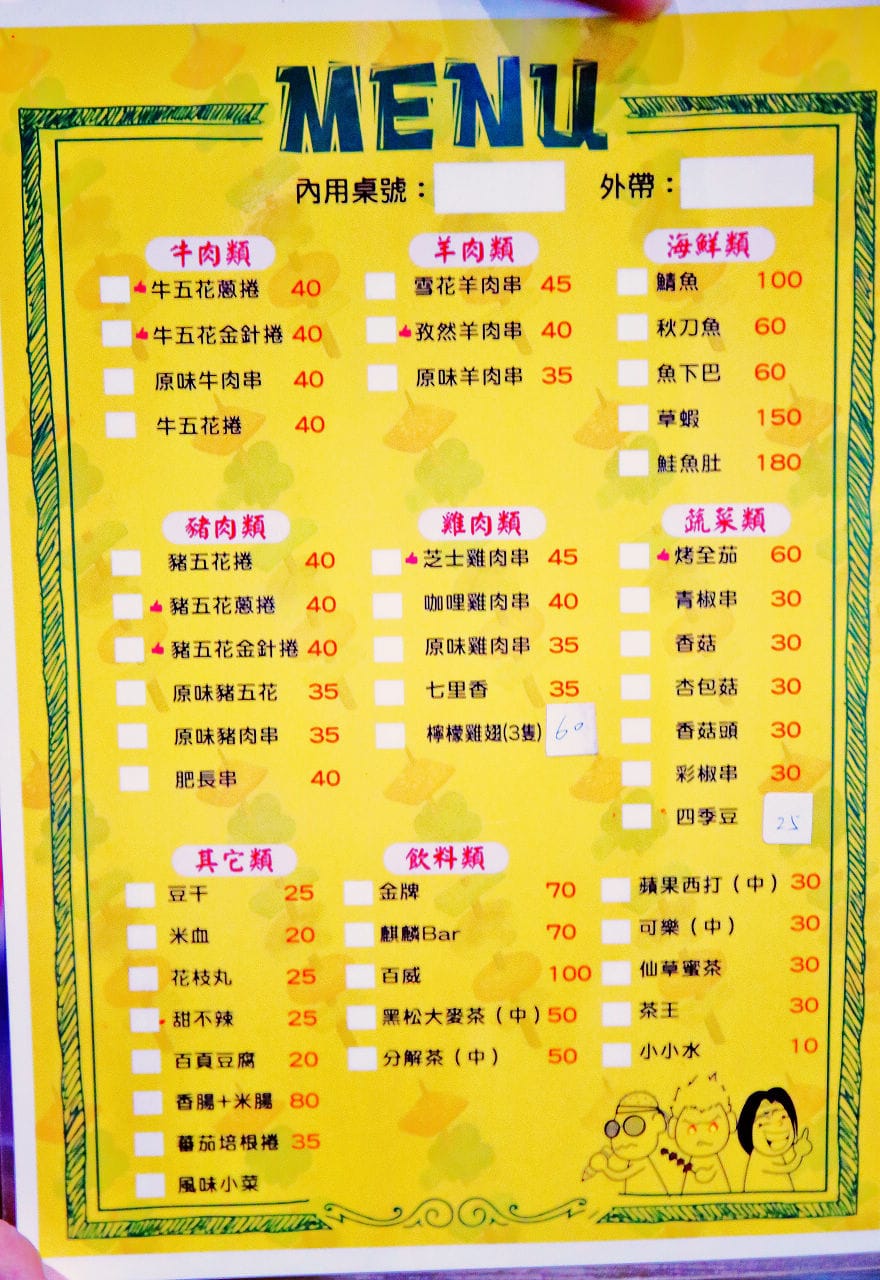 MENU
內用桌號：
外帶：
牛肉類
牛五花蔥捲 40
牛五花金針捲 40
原味牛肉串 40
牛五花捲 40
羊肉類
雪花羊肉串 45
孜然羊肉串 40
原味羊肉串 35
海鮮類
鯖魚 100
秋刀魚 60
魚下巴 60
草蝦 150
鮭魚肚 180
豬肉類
豬五花捲 40
豬五花蔥捲 40
豬五花金針捲 40
原味豬五花 35
原味豬肉串 35
肥長串 40
雞肉類
芝士雞肉串 45
咖哩雞肉串 40
原味雞肉串 35
七里香 35
檸檬雞翅(3隻) 60
蔬菜類
烤全茄 60
青椒串 30
香菇 30
杏包菇 30
香菇頭 30
彩椒串 30
四季豆 25
其它類
豆干 25
米血 20
花枝丸 25
甜不辣 25
百頁豆腐 20
香腸+米腸 80
蕃茄培根捲 35
風味小菜
飲料類
金牌 70
麒麟Bar 70
百威 100
黑松大麥茶（中）50
分解茶（中） 50
蘋果西打（中）30
可樂（中） 30
仙草蜜茶 30
茶王 30
小小水 10